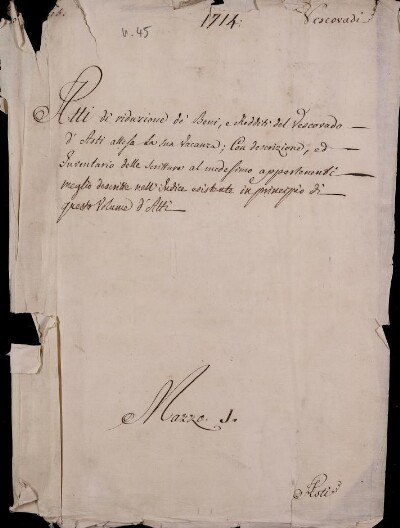 1714:
Vescovadi
v. 45
Atti di riduzione de' Beni, e Redditi del Vescovado
d'Asti attesa la sua Vacanza; Con descrizione, ed
Inventario delle Scritture al medesimo appartenenti
meglio descritte nell'Indice esistente in principio di
questo Volume d'Atti
Mazzo. 1.
Asti